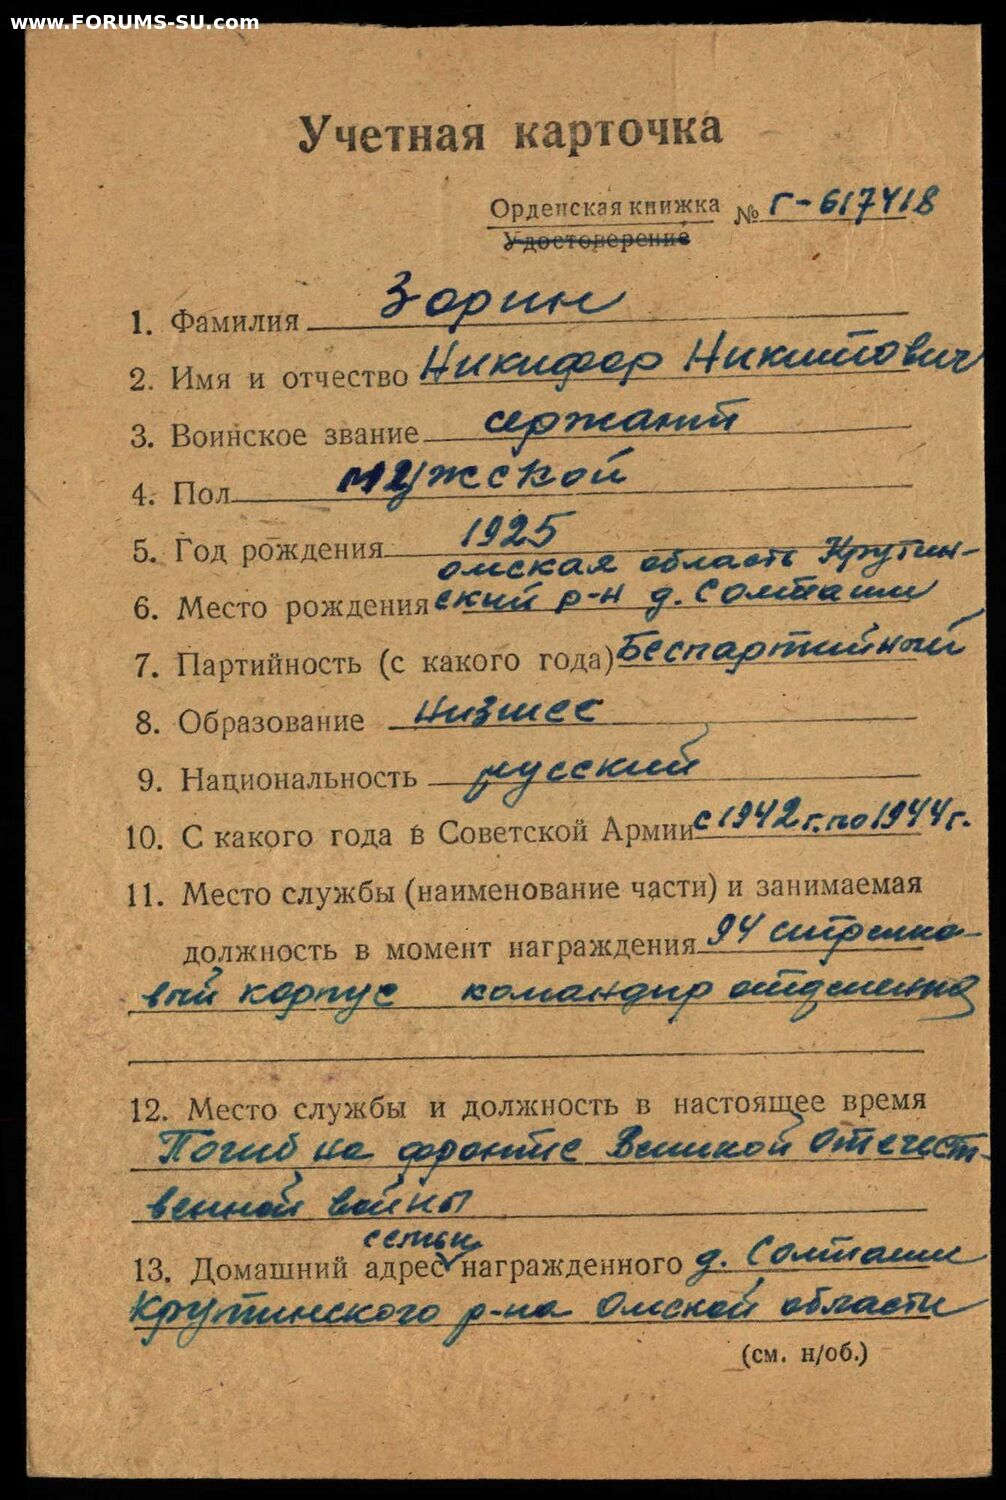 www.FORUMS-SU.com
Учетная карточка
Орденская книжка № Г-617418
Удостоверение
1. Фамилия Зорин
2. Имя и отчество Никифор Никитович
3. Воинское звание сержант
4. Пол мужской
5. Год рождения 1925
омская область Крутин-
6. Место рождения ский р-н д. Солташи
7. Партийность (с какого года) Беспартийный
8. Образование низшее
9. Национальность русский
10. С какого года в Советской Армии с 1942 г. по 1944 г.
11. Место службы (наименование части) и занимаемая
должность в момент награждения 94 стрелко-
вый корпус командир отделения
12. Место службы и должность в настоящее время
Погиб на фронте Великой Отечест-
венной войны
семьи
13. Домашний адрес награжденного д. Солташи
Крутинского р-на Омской области
(см. н/об.)